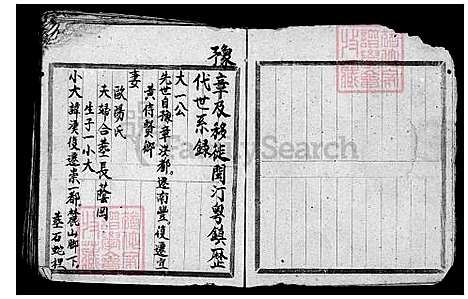 豫章及移徙閩汀粵鎮歷
代世系錄
大一公
先世自豫章洪都。遷南豐。復遷宜
黃侍賢鄉
妻
歐陽氏
夫婦合塟長蔭岡
生子一小大
小大諱漢復遷崇一都麓山脚下
塟石蛇揑
FamilySearch